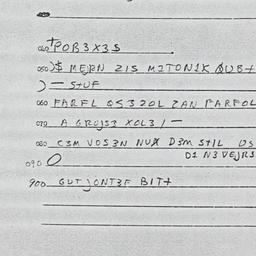 040 POB3X3S
050 )$ MERN 21S M2TON1K QUB+
) — S+UF
060 FARFL GS3 20L ZAN PARFOL
070 A GROJS3 XOL3 / —
080 C3M VOS3N NUX D3M S+1L DS
D1 N3VEJRS
090 O
900 GUT JONT3F BIT+